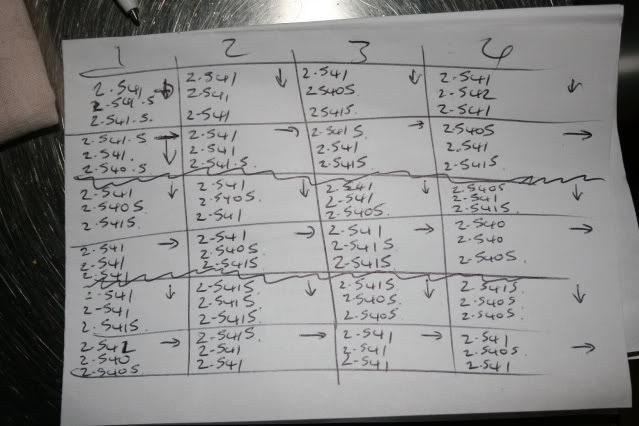 1 2 3 4
2.541 → 2.541 ↓ 2.541 ↓ 2.541 ↓
2.541.5 2.541 2.5405 2.542
2.541.5 2.541 2.5415 2.541
2.541.5 → 2.541 → 2.5415 → 2.5405 →
2.541. ↓ 2.541 2.541 2.541
2.540.5 2.541.5 2.5415 2.5415
2.541 ↓ 2.541 ↓ 2.541 ↓ 2.5405 ↓
2.5405 2.5405 2.541 2.541
2.5415 2.541 2.5405 2.5415
2.541 → 2.541 → 2.541 → 2.540 →
2.541 2.5405 2.5415 2.540
2.541 2.5415 2.5415 2.5405
2.541 ↓ 2.5415 ↓ 2.5415 ↓ 2.5415 ↓
2.541 2.5415 2.5405 2.5405
2.5415 2.5415 2.5405 2.5405
2.542 → 2.5415 → 2.541 → 2.541 →
2.540 2.541 2.541 2.5405
2.5405 2.541 2.541 2.541